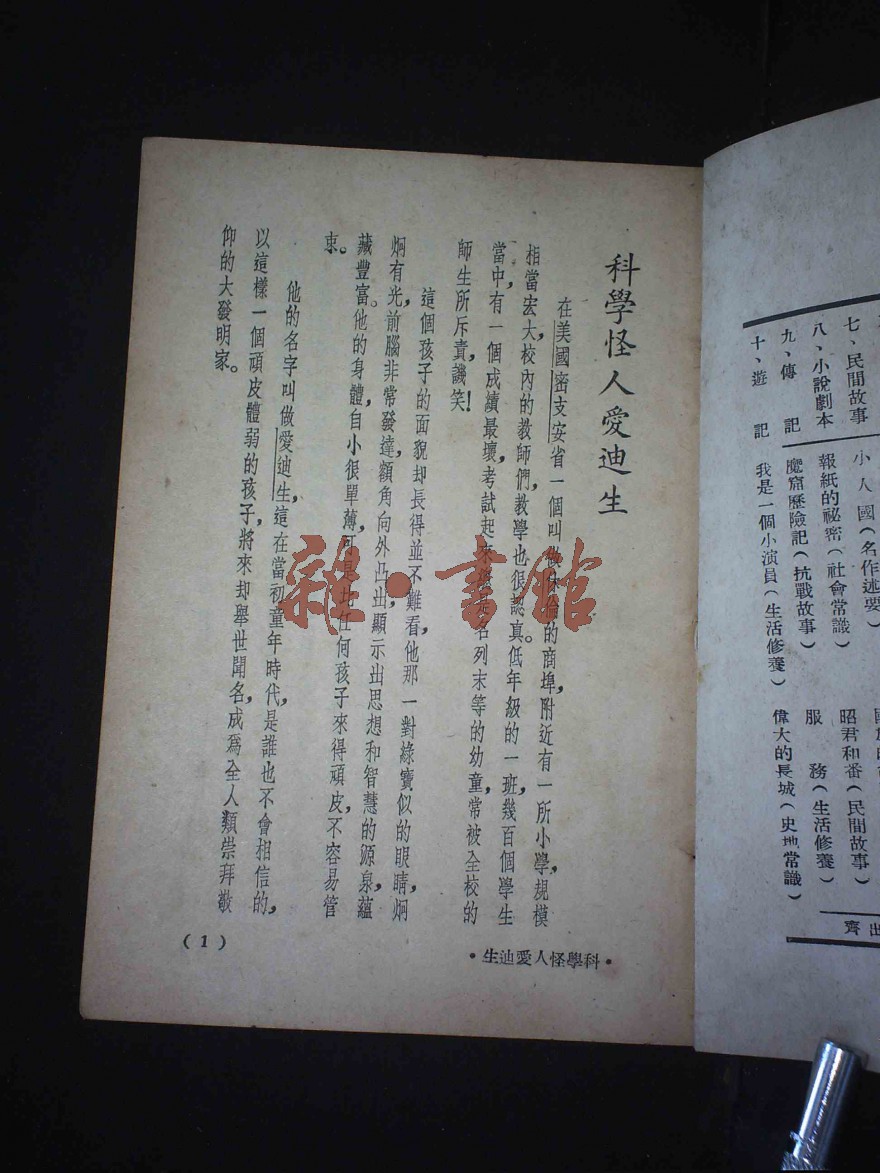 七、民間故事
八、小說劇本
九、傳 記
十、遊 記
小人國(名作述要)
報紙的秘密(社會常識)
魔窟歷險記(抗戰故事)
我是一個小演員(生活修養)
昭君和番(民間故事)
服 務(生活修養)
偉大的長城(史地常識)
出齊
科學怪人愛迪生
在美國密支安省一個叫做休倫的商埠,附近有一所小學,規模
相當宏大,校內的教師們,教學也很認真。低年級的一班,幾百個學生
當中,有一個成績最壞,考試起來總是名列末等的幼童,常被全校的
師生所斥責,譏笑!
這個孩子的面貌却長得並不難看,他那一對綠寶似的眼睛,炯
炯有光,前腦非常發達,額角向外凸出,顯示出思想和智慧的源泉,蘊
藏豐富。他的身體,自小很單薄,可是比任何孩子來得頑皮,不容易管
束。
他的名字叫做愛迪生,這在當初童年時代,是誰也不會相信的,
以這樣一個頑皮體弱的孩子,將來却舉世聞名,成爲全人類崇拜敬
仰的大發明家。
·科學怪人愛迪生·
(1)
雜·書館